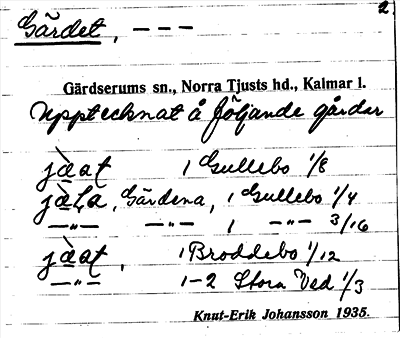 2.
Gärdet, – – –
Gärdserums sn., Norra Tjusts hd., Kalmar l.
Upptecknat å följande gårdar
jæ̀at 1 Gullebo 1/8
jæ̀la, Gärdena, 1 Gullebo 1/4
—„— —„— 1 —„— 3/16
jæ̀at, 1 Broddebo 1/12
—„— 1–2 Stora Ved 1/3
Knut-Erik Johansson 1935.